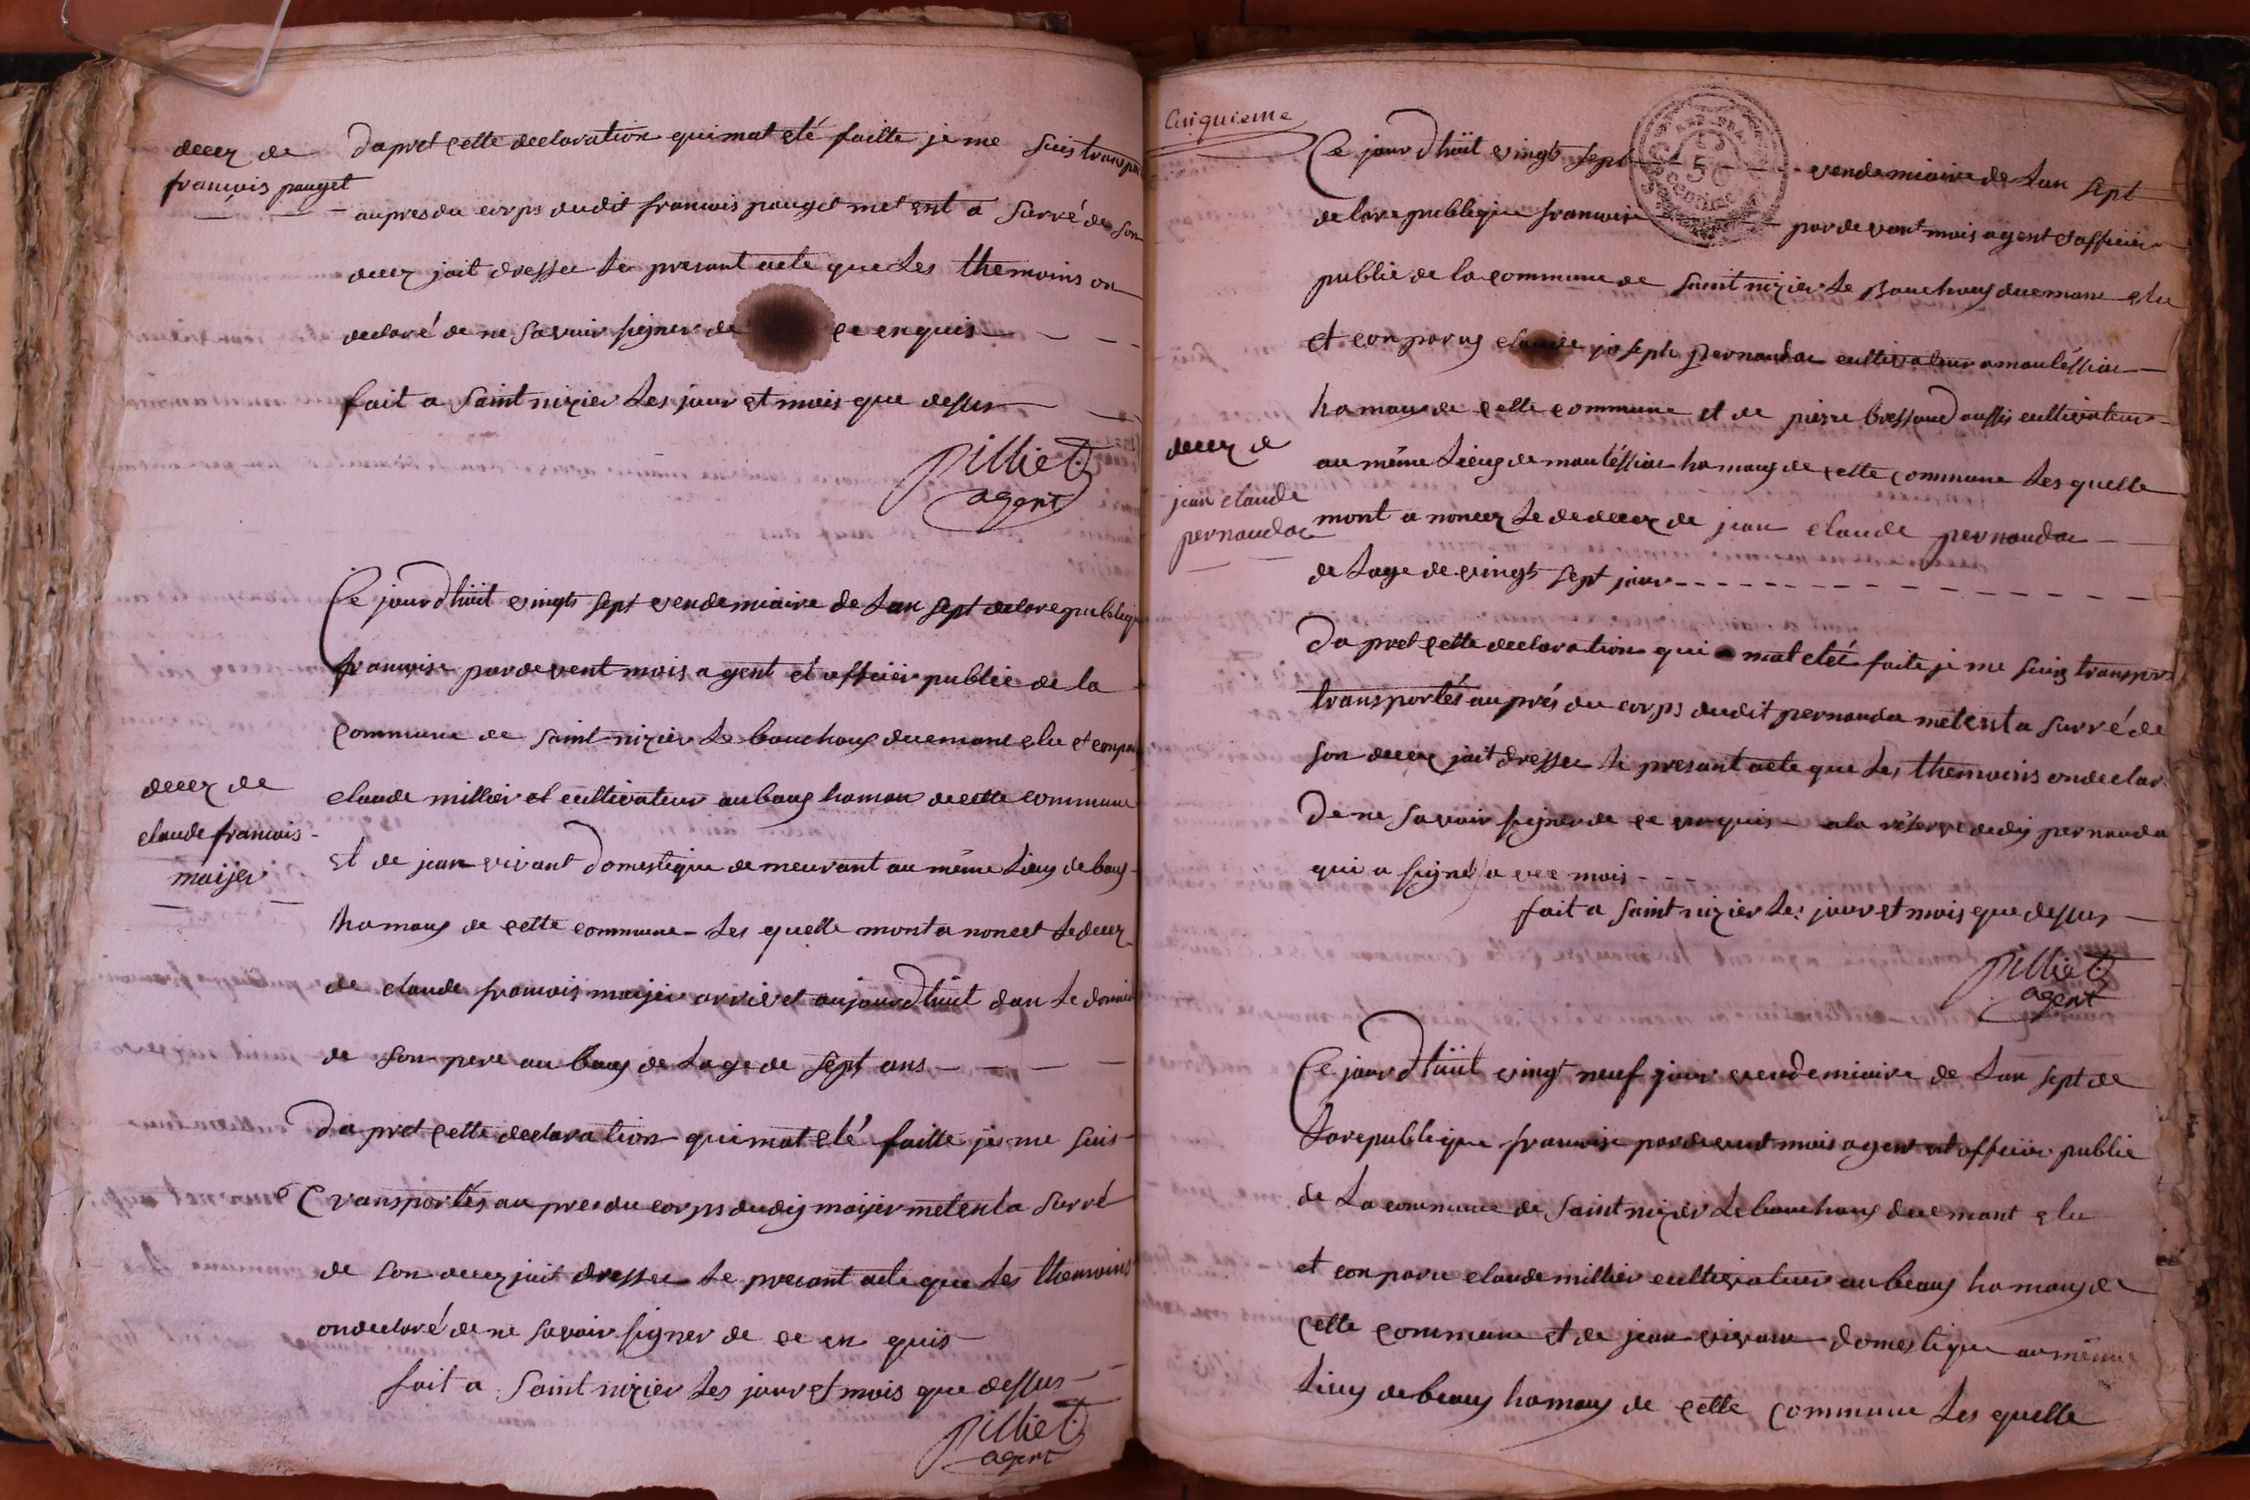 decez de
francois pouget
dapret cette declaration qui mat eté faitte je me suis transpor
aupres du corps dudit francois pouget met ent a surré de son
decez jait dresser le presant acte que les themoins on
declaré de ne savoir signer de ce enquis
fait a saint nizier les jour et mois que dessus
pilliet
agent
Ce jourdhüit vingts sept vendemiaire de lan sept de la republiq
francoise pardevent mois agent et officier public de la
commune de saint nizier le bouchoug duemant elu et conpa
decez de
claude francois
maijer
claude millier et cultivateur au baug hamau de cette commune
et de jean vivant domestique demeurant au même lieug de baug
hamaug de cette commune les quelle mont anoncet le decez
de claude francois maijer arrivet aujourdhüit dan le domici
de son pere au baug de lage de sept ans
dapret cette declaration qui mat eté faitte je me suis
transportés au pres du corps dudij maijer met ent a surré
de son decez jait dresser le presant acte que les themoins
on declaré de ne savoir signer de ce en quis
fait a saint nizier les jour et mois que dessus
pilliet
agent
Cinquieme
Ce jourdhüit vingts sept vendemiaire de lan sept
de la republique francoise pardevant mois agent et officier
public de la commune de saint nizier le Bouchoug duemant elu
et conparus claude joseph pernaudac cultivateur a mouléssiac
hamau de cette commune et de pierre bressoud aussi cultivateur
decez de
jean claude
pernaudac
au même lieug de mouléssiac hamaug de cette commune les quelle
mont anoncez le dedecez de jean claude pernaudac
de lage de vingts sept jour
dapret cette declaration qui mat eteé faite je me suis transpor
transportés au prés du corps dudit pernauda met ent a surré de
son decez jait dresser le presant acte que les themoins on declar
de ne savoir signer de ce enquis a la réserve dudij pernauda
qui a signé avec mois
fait a saint nizier les jour et mois que dessus
pilliet
agent
Ce jourdhüit vingt neuf jour vendemiaire de lan sept de
la republique francoise pardevent mois agent et officier public
de la commune de saint nizier le bouchoug duemant elu
et conparu claude millier cultivateur au beaug hamaug de
cette commune et de jean vivant domestique au même
lieug de beaug hamaug de cette commune les quelle